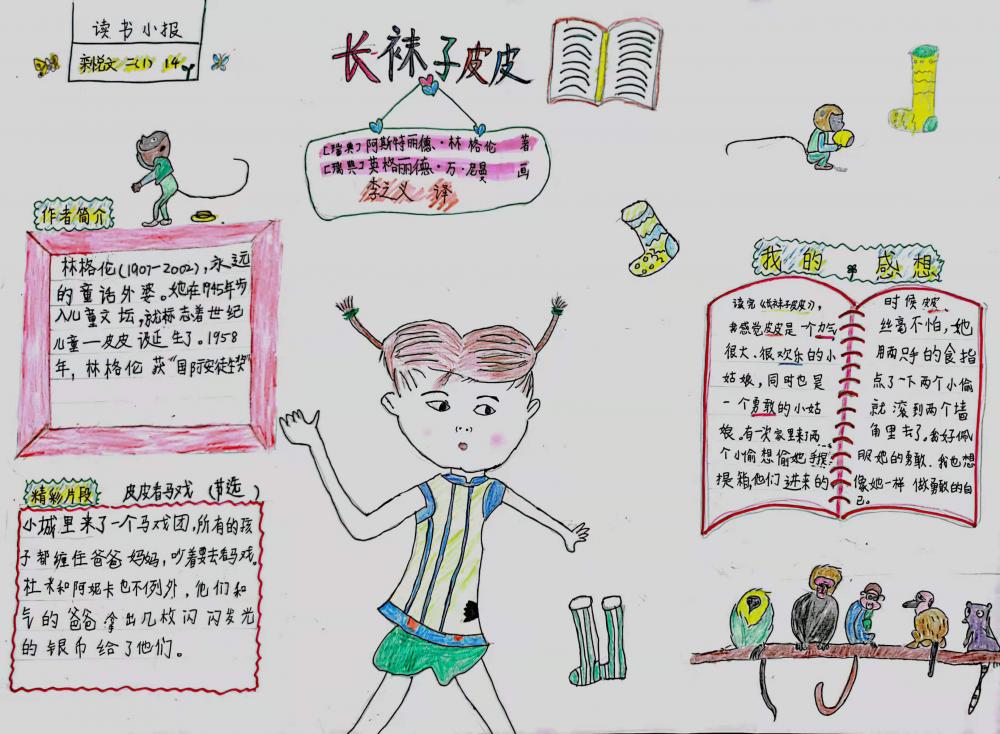 读书小报
栾悦文 二(1) 14
长袜子皮皮
[瑞典] 阿斯特丽德·林格伦 著
[瑞典] 英格丽德·万·尼曼 画
李之义 译
作者简介
林格伦(1907-2002),永远
的童话外婆。她在1945年步
入儿童文坛,就标志着世纪
儿童—皮皮诞生了。1958
年,林格伦获"国际安徒生奖"
精彩片段 皮皮看马戏(节选)
小城里来了一个马戏团,所有的孩
子都缠住爸爸妈妈,吵着要去看马戏。
杜米和阿妮卡也不例外,他们和
气的爸爸拿出几枚闪闪发光
的银币给了他们。
我的感想
读完《长袜子皮皮》,
我感觉皮皮是一个力气
很大、很欢乐的小
姑娘,同时也是
一个勇敢的小姑
娘。有一次家里来了两
个小偷想偷她手提
提箱他们进来的
时候皮皮
丝毫不怕,她
用两只手的食指
点了一下两个小偷
就滚到两个墙
角里去了。我好佩
服她的勇敢、我也想
像她一样做勇敢的自
己。